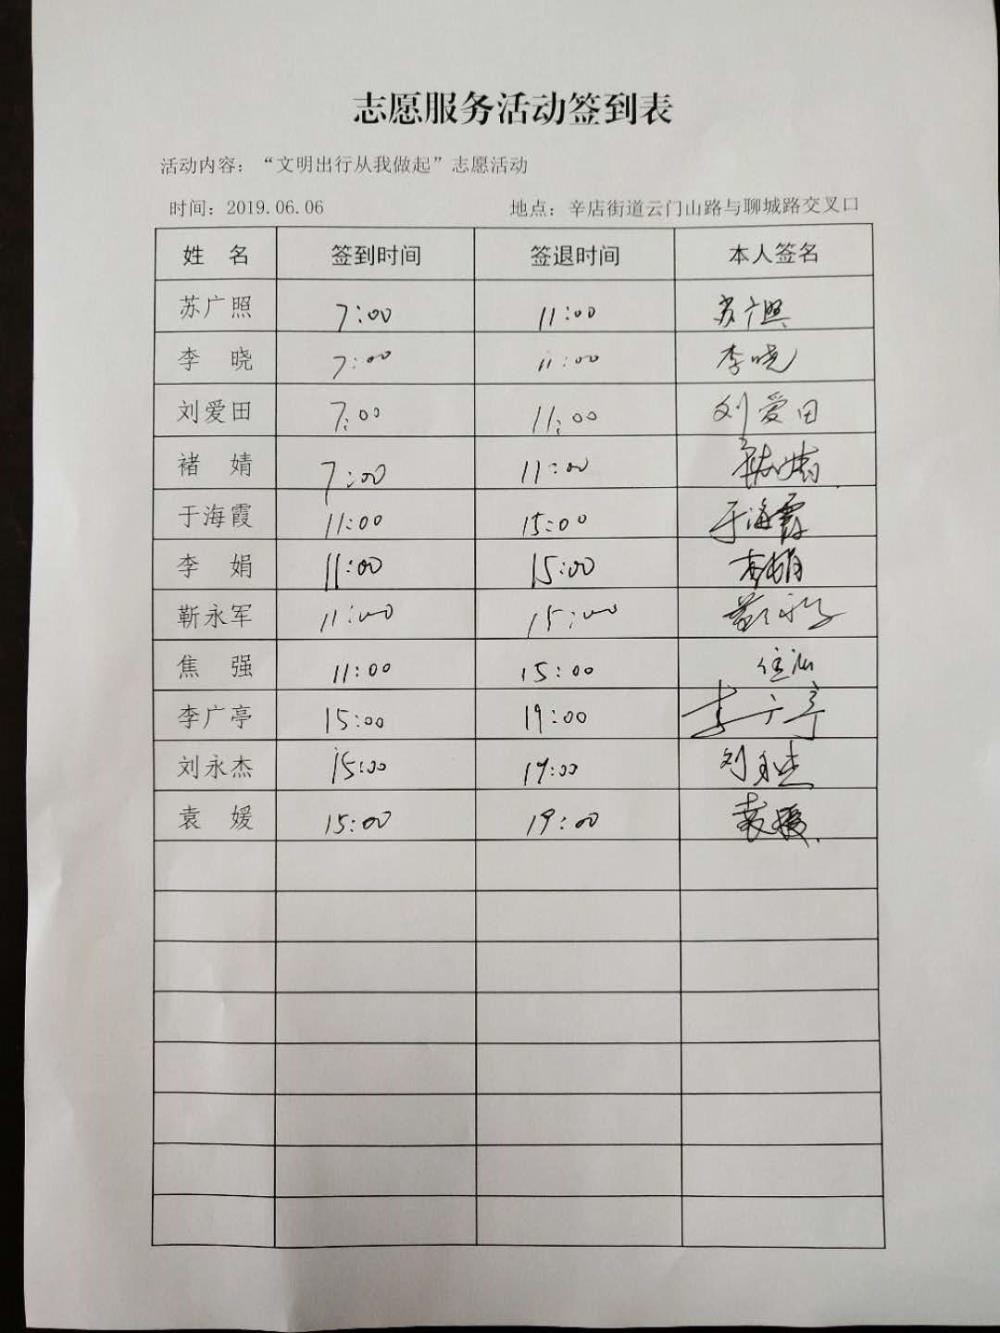 志愿服务活动签到表
活动内容：“文明出行从我做起”志愿活动
时间：2019.06.06 地点：辛店街道云门山路与聊城路交叉口
姓 名 签到时间 签退时间 本人签名
苏广照 7:00 11:00 苏广照
李 晓 7:00 11:00 李晓
刘爱田 7:00 11:00 刘爱田
褚 婧 7:00 11:00
于海霞 11:00 15:00 于海霞
李 娟 11:00 15:00 李娟
靳永军 11:00 15:00
焦 强 11:00 15:00
李广亭 15:00 19:00 李广亭
刘永杰 15:00 19:00 刘永杰
袁 媛 15:00 19:00 袁媛